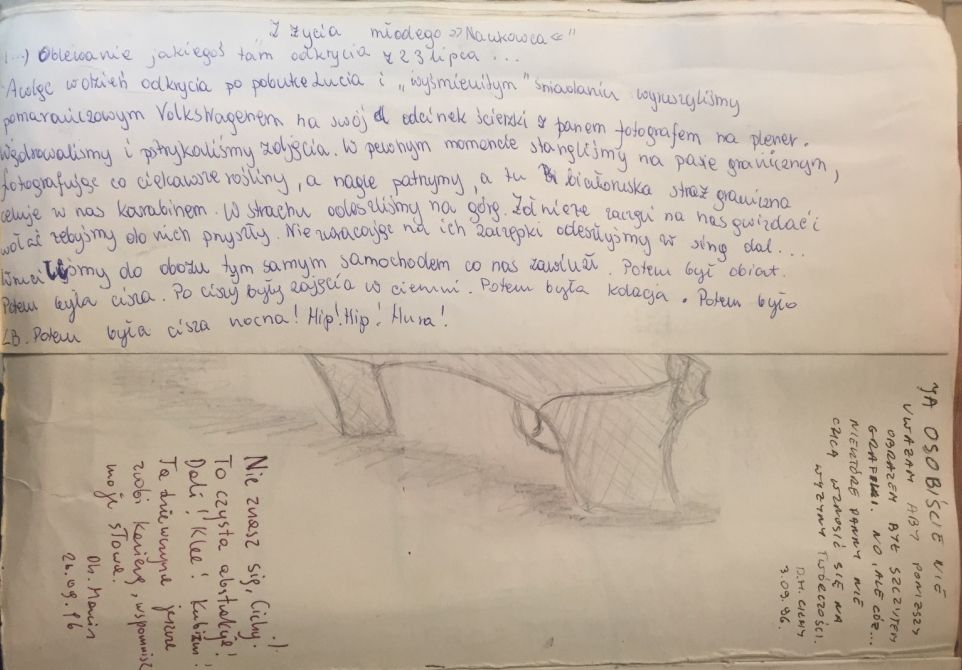 „Z życia młodego »Naukowca«"
(...) Oblewanie jakiegoś tam odkrycia z 23 lipca ...
A więc w dzień odkrycia po pobudce Łucia i „wyśmienitym" śniadaniu wyruszyliśmy
pomarańczowym Volkswagenem na swój odcinek ścieżki z panem fotografem na plener.
Wędrowaliśmy i pstrykaliśmy zdjęcia. W pewnym momencie stanęliśmy na pasie granicznym,
fotografując co ciekawsze rośliny, a nagle patrzymy, a tu białoruska straż graniczna
celuje w nas karabinem. W strachu odeszliśmy na górę. Żołnierze zaczęli na nas gwizdać i
wołać żebyśmy do nich przyszły. Nie zwracając na ich zaczepki odeszłyśmy w siną dal...
do obozu tym samym samochodem co nas zawiózł. Potem był obiat.
Potem była cisza. Po ciszy były zajęcia w ciemni. Potem była kolacja. Potem było
ŁB. Potem była cisza nocna! Hip! Hip! Hura!
JA OSOBIŚCIE NIE
UWAŻAM ABY PONIŻSZY
OBRAZEM BYŁ SZCZYTEM
GRAFIKI. NO, ALE CÓŻ...
NIEKTÓRE PANNY NIE
CHCĄ WZNOSIĆ SIĘ NA
WYŻYNY TWÓRCZOŚCI.
D.H. CICHY
3.09.96.
Nie znasz się, Cichy!
To czysta abstrakcja!
Dali! Klee! Kubizm!
Ta dziewczyna jeszcze
zrobi karierę, wspomnisz
moje słowa.
Dh. Marcin
26.09.96